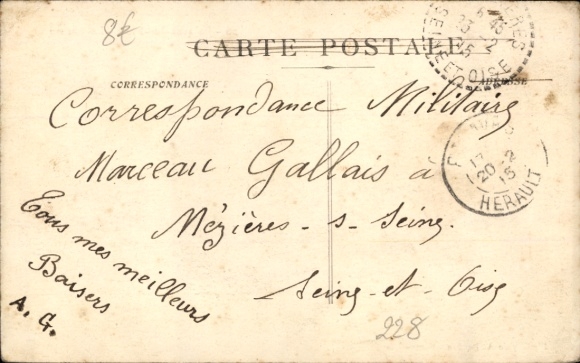 8€
CARTE POSTALE
CORRESPONDANCE
ADRESSE
Correspondance Militaire
Marceau Gallais à
Mézières-s-Seine.
Seine-et-Oise
Tous mes meilleurs
Baisers
A. G.
228
SEINE-ET-OISE
20-2
15
HERAULT